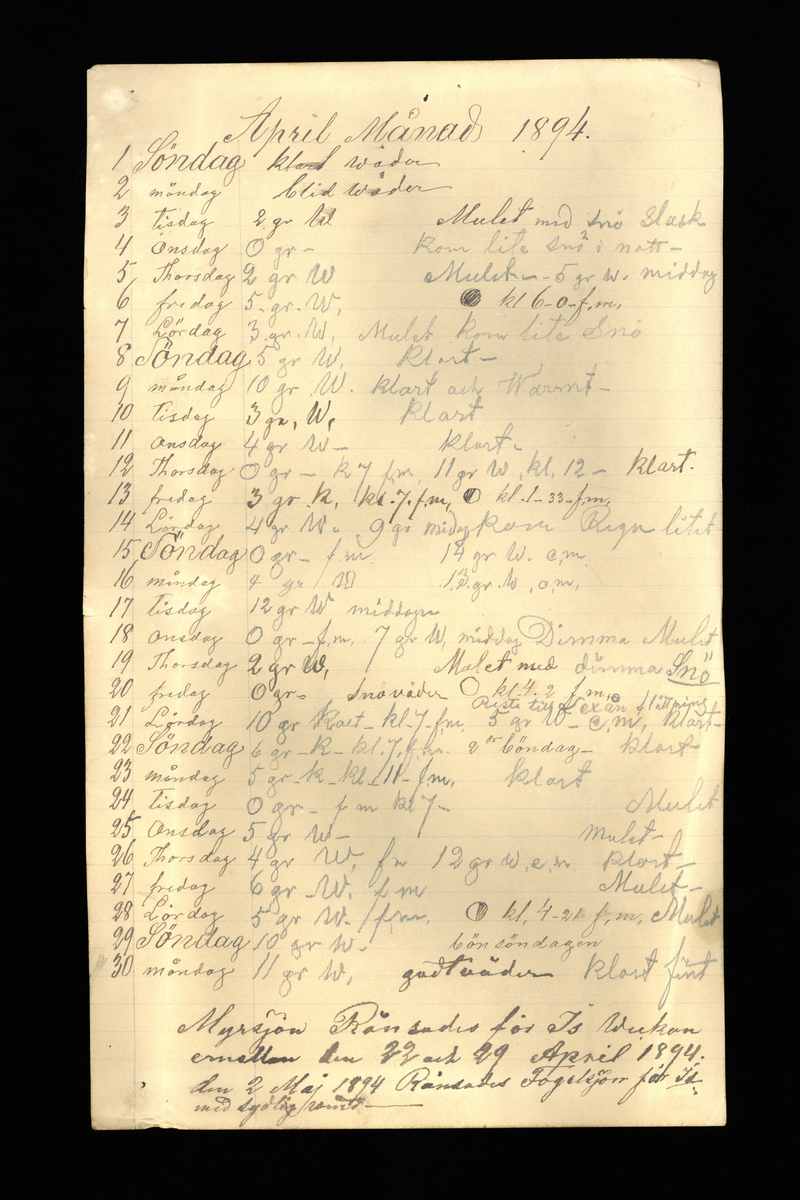 April Månad 1894.
1 Söndag klart wäder
2 måndag blid wäder
3 tisdag 2 gr W Mulet med snö Slask
4 Onsdag 0 gr - kom lite snö i natt -
5 Thorsdag 2 gr W Mulet - - 5 gr w. middag
6 fredag 5 gr. W, kl 6-0-f.m.
7 Lördag 3 gr. W, Mulet kom lite Snö
8 Söndag 5 gr W, klart -
9 måndag 10 gr W. klart och Warmt -
10 tisdag 3 gr, W, klart
11 Onsdag 4 gr W - klart -
12 Thorsdag 0 gr - k 7 f.m. 11 gr W, kl. 12 - klart.
13 fredag 3 gr k, kl. 7. f.m, kl -1-33- f.m,
14 Lördag 4 gr W. 9 gr middag kom Regn litet
15 Söndag 0 gr - f.m 14 gr W. e,m
16 måndag 4 gr W 12 gr. W, e,m,
17 tisdag 12 gr W middagen
18 Onsdag 0 gr - f.m, 7 gr W, middag Dimma Mulet
19 Thorsdag 2 gr W, Mulet med dimma Snö
20 fredag 0 gr - Snöväder kl. 4. 2 f.m,
Reste till flåttning
21 Lördag 10 gr Kalt - kl - 7 f.m, 5 gr W - e,m, klart -
22 Söndag 6 gr - K - kl. 7. f.m. 2 böndag - klart
23 måndag 5 gr - k - kl - 11 - f.m. klart
24 tisdag 0 gr - f m kl 7 - Mulet
25 Onsdag 5 gr W - mulet -
26 Thorsdag 4 gr W, f m 12 gr W, e, m klart -
27 fredag 6 gr - W. f m Mulet -
28 Lördag 5 gr W. f.m. kl, 4-21 f,m, Mulet
29 Söndag 10 gr W - bönsöndagen
30 måndag 11 gr W, godt väder klart fint
Myrsjön Rånsades för Is Wickan
emellan den 22 och 29 April 1894.
den 2 Maj 1894 Rånsades Fogelsjön för Is
med sydlig wind -